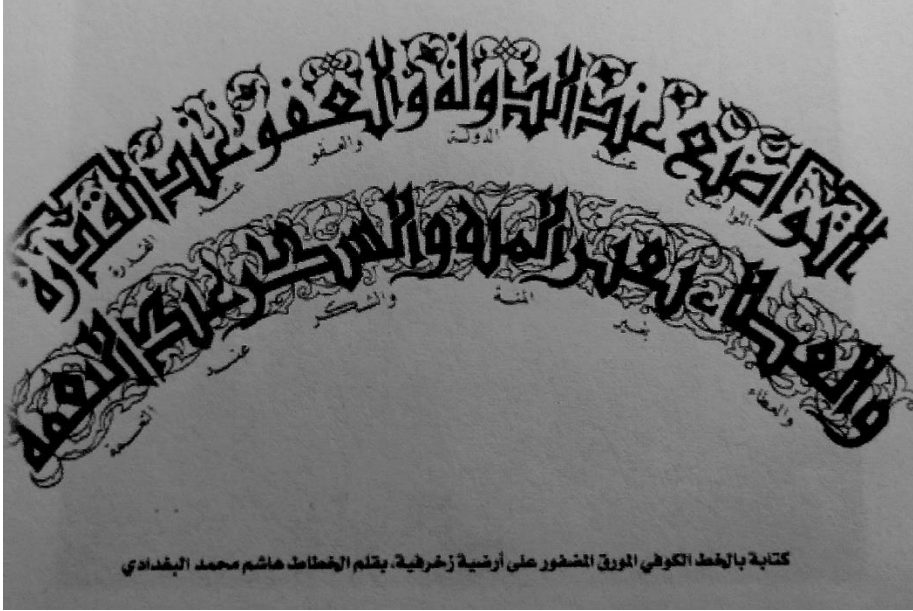 التواضع عند الدولة والعفو عند القدرة
التواضع عند الدولة والعفو عند القدرة
والعطاء بغير المنة والشكر عند النعمة
والعطاء بغير المنة والشكر عند النعمة
كتابة بالخط الكوفي المورق المضفور على أرضية زخرفية، بقلم الخطاط هاشم محمد البغدادي